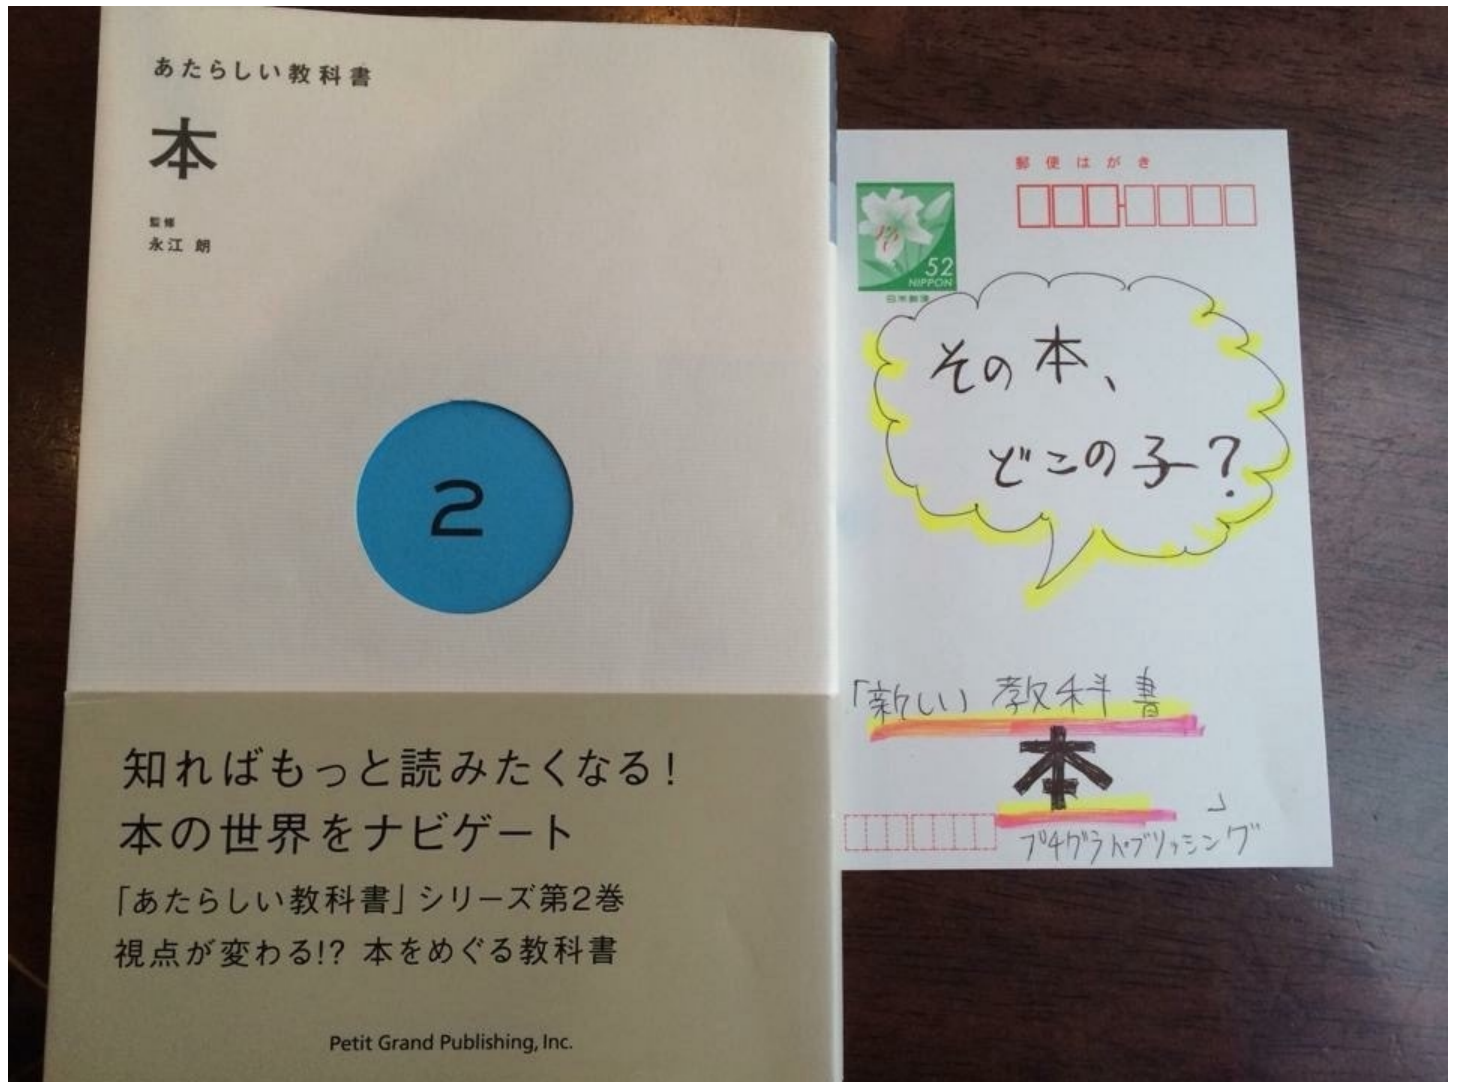 あたらしい教科書
本
監修
永江 朗
2
知ればもっと読みたくなる!
本の世界をナビゲート
「あたらしい教科書」シリーズ第2巻
視点が変わる!? 本をめぐる教科書
Petit Grand Publishing, Inc.
郵便はがき
52
NIPPON
日本郵便
その本、
どこの子?
「新しい教科書
本
」
プチグラパブリッシング